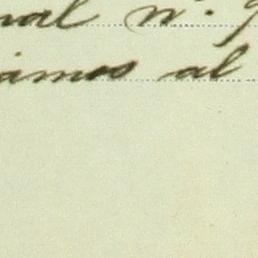 nal nº. 9
iamos al